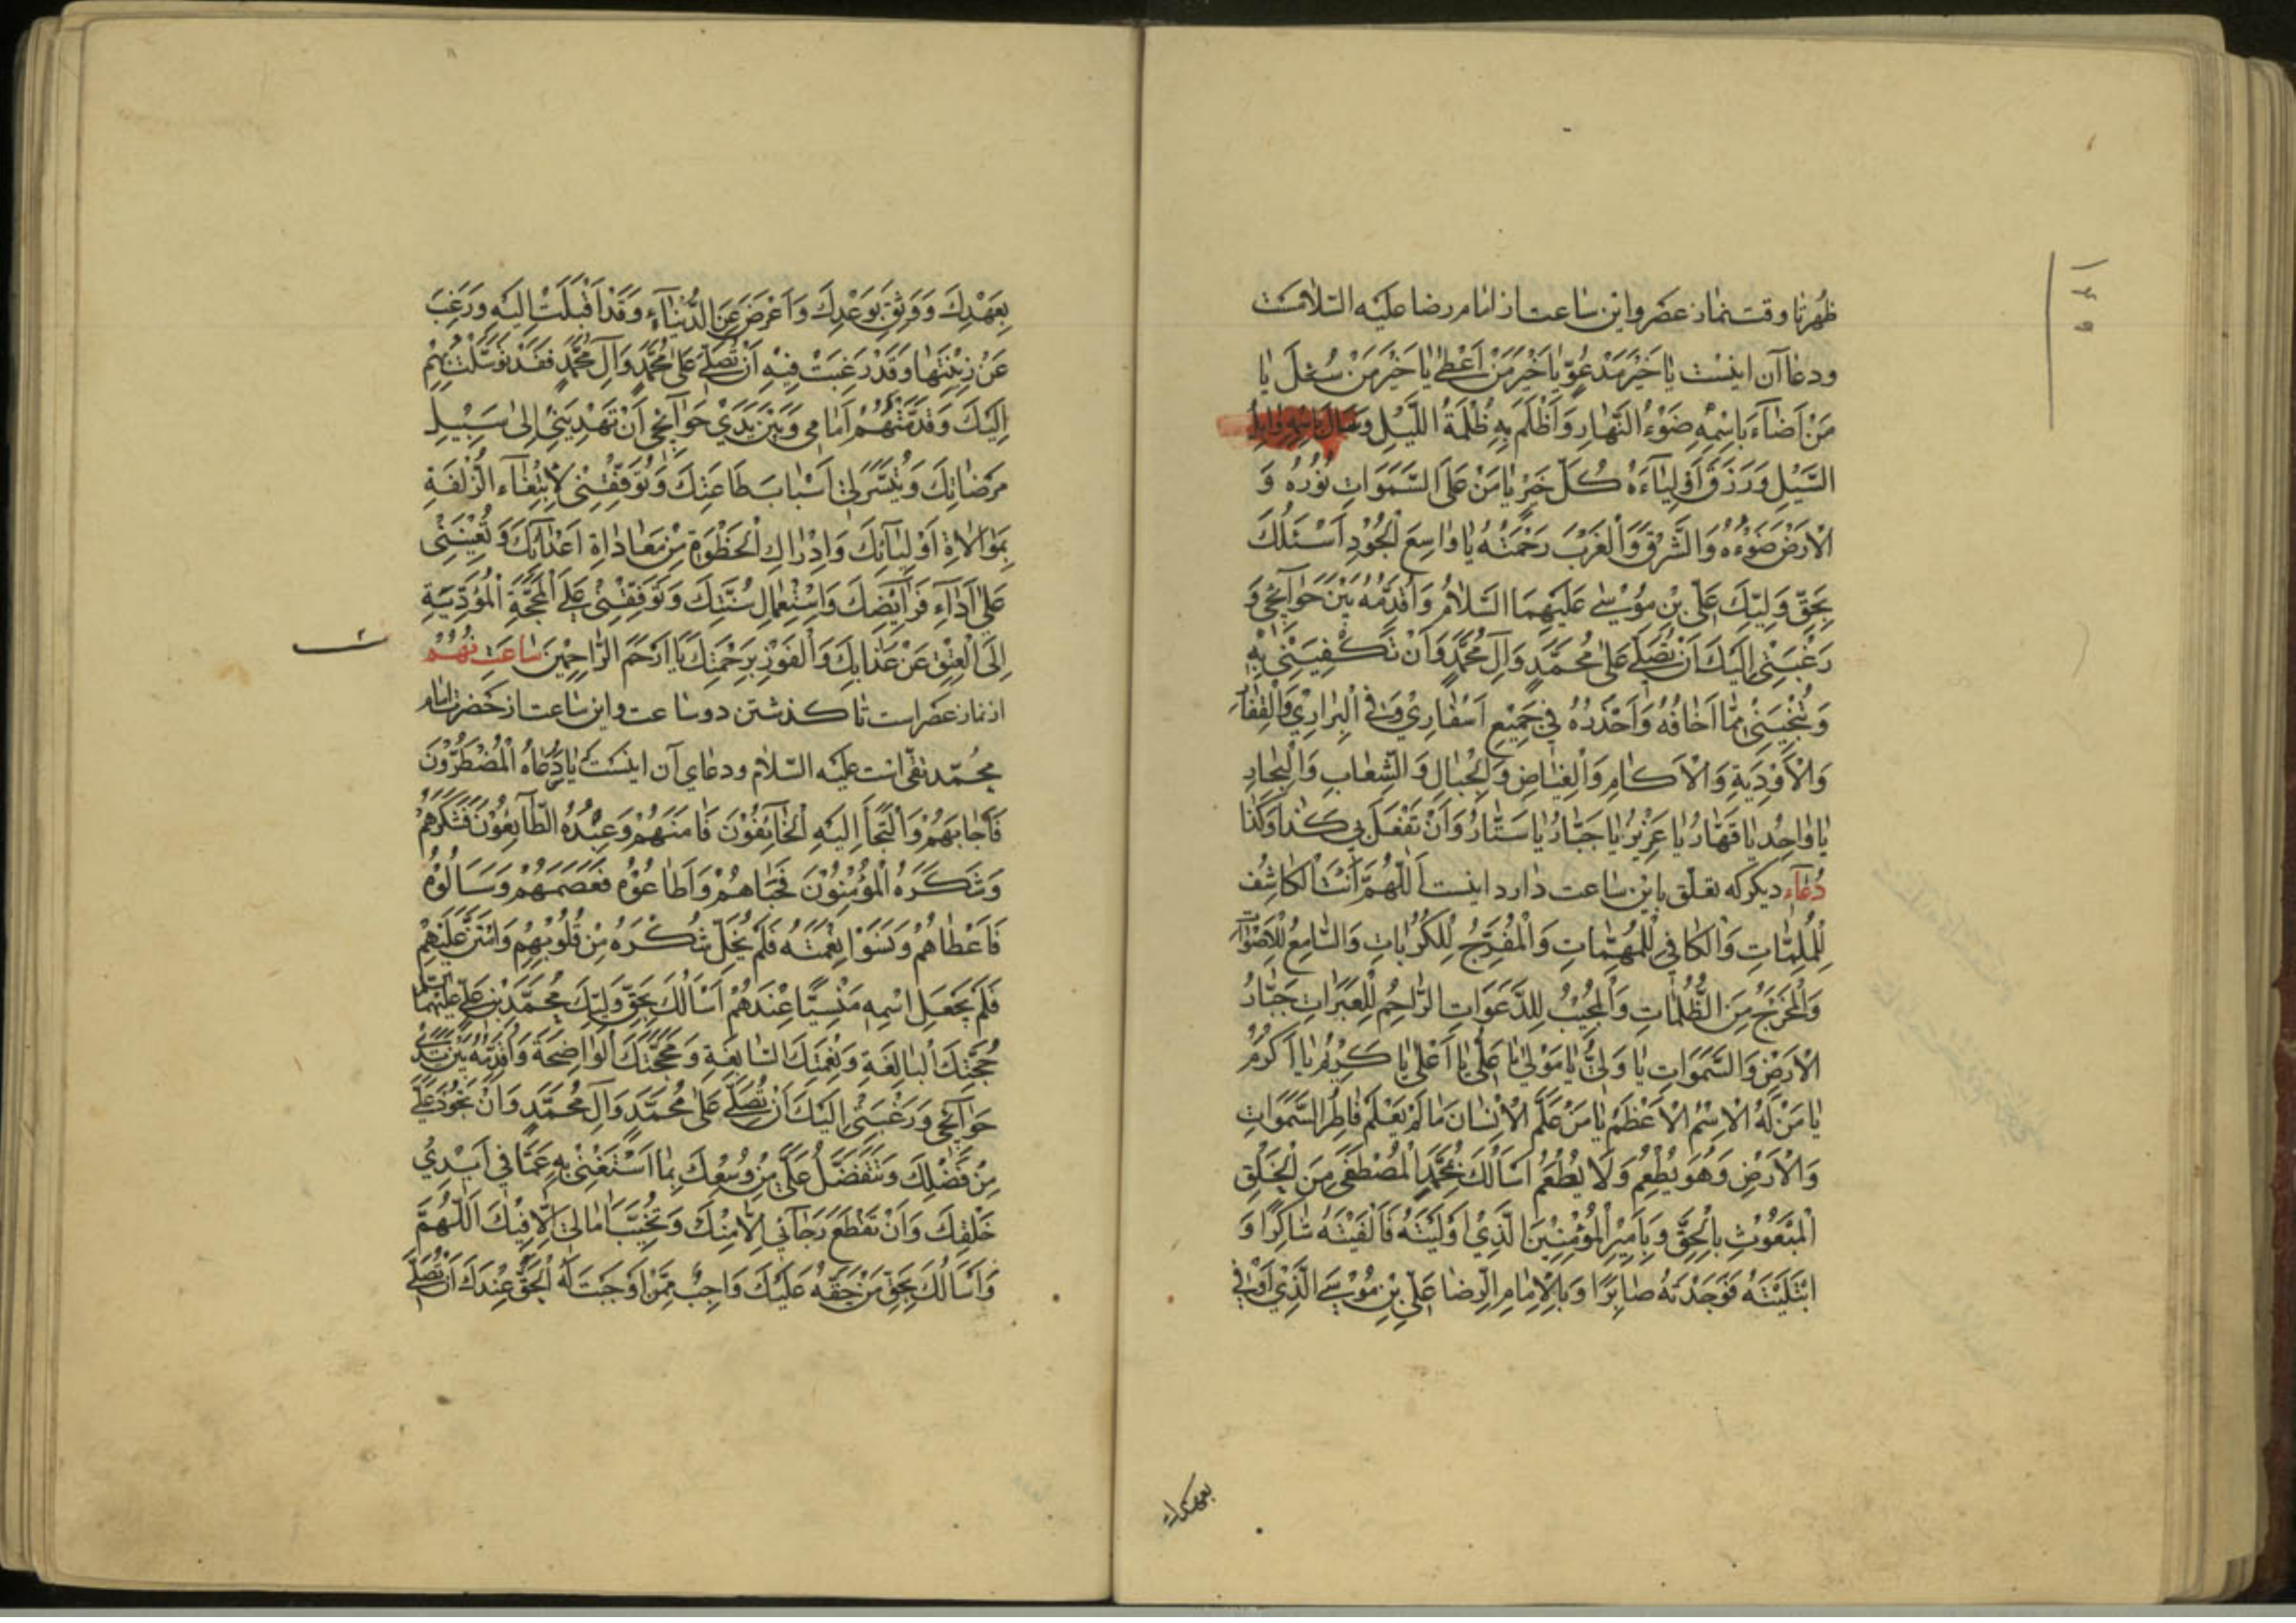 ۱۳۹
ظُهْرتا وقت نماذ عصر واین ساعت از امام رضا علیه السّلامست
ودعا آن اینست یا خَیْرَ مَدْعُوٍّ یا خَیْرَ مَنْ اَعْطیٰ یا خَیْرَ مَنْ سُئِلَ یا
مَنْ اَضٰآءَ بِاسْمِهِ ضَوْءُ النَّهٰارِ وَاَظْلَمَ بِهِ ظُلْمَةُ اللَّیْلِ وَسٰالَ بِاسْمِهِ وٰابِلُ
السَّیْلِ وَرَزَقَ اَوْلِیٰآءَهُ کُلَّ خَیْرٍ یٰا مَنْ عَلَا السَّمَوٰاتِ نُوْرُهُ وَ
الْاَرْضَ ضَوْءُهُ وَالشَّرْقَ وَالْغَرْبَ رَحْمَتُهُ یٰا وٰاسِعَ الْجُوْدِ اَسْئَلُكَ
بِحَقِّ وَلِیِّكَ عَلِیِّ بْنِ مُوْسیٰ عَلَیْهِمَا السَّلٰامُ وَاُقَدِّمُهُ بَیْنَ حَوٰآئِجِی وَ
رَغْبَتِی اِلَیْكَ اَنْ تُصَلِّیَ عَلیٰ مُحَمَّدٍ وَآلِ مُحَمَّدٍ وَاَنْ تَکْفِیَنِی بِهِ
وَتُنْجِیَنِی مِمّٰا اَخٰافُهُ وَاَحْذَرُهُ فِی جَمِیْعِ اَسْفٰارِیْ وَفِی الْبَرٰارِیْ وَالْقِفٰارِ
وَالْاَوْدِیَةِ وَالْاٰکٰامِ وَالْغِیٰاضِ وَالْجِبٰالِ وَالشِّعٰابِ وَالْبِحٰارِ
یٰا وٰاحِدُ یٰا قَهّٰارُ یٰا عَزِیْزُ یٰا جَبّٰارُ یٰا سَتّٰارُ وَاَنْ تَفْعَلَ بِی کَذٰا وَکَذٰا
دُعٰآء دیکر که تعلّق باین ساعت دارد اینست اَللّٰهُمَّ اَنْتَ الْکٰاشِفُ
لِلْمُلِمّٰاتِ وَالْکٰافِی لِلْمُهِمّٰاتِ وَالْمُفَرِّجُ لِلْکُرُبٰاتِ وَالسّٰامِعُ لِلْاَصْوٰاتِ
وَالْمُخْرِجُ مِنَ الظُّلُمٰاتِ وَالْمُجِیْبُ لِلدَّعَوٰاتِ الرّٰاحِمُ لِلْعَبَرٰاتِ جَبّٰارُ
الْاَرْضِ وَالسَّمَوٰاتِ یٰا وَلِیُّ یٰا مَوْلیٰ یٰا عَلِیُّ یٰا اَعْلیٰ یٰا کَرِیْمُ یٰا اَکْرَمُ
یٰا مَنْ لَهُ الْاِسْمُ الْاَعْظَمُ یٰا مَنْ عَلَّمَ الْاِنْسٰانَ مٰا لَمْ یَعْلَمْ فٰاطِرَ السَّمَوٰاتِ
وَالْاَرْضِ وَهُوَ یُطْعِمُ وَلَا یُطْعَمُ اَسْاَلُكَ بِمُحَمَّدٍ الْمُصْطَفیٰ مِنَ الْخَلْقِ
الْمَبْعُوْثِ بِالْحَقِّ وَبِاَمِیْرِ الْمُؤْمِنِیْنَ الَّذِیْ اَوْلَیْتَهُ فَاَلْفَیْتَهُ شٰاکِرًا وَ
ابْتَلَیْتَهُ فَوَجَدْتَهُ صٰابِرًا وَبِالْاِمٰامِ الرِّضٰا عَلِیِّ بْنِ مُوْسیَ الَّذِیْ اَوْفیٰ
بعهدك
بِعَهْدِكَ وَوَثِقَ بِوَعْدِكَ وَاَعْرَضَ عَنِ الدُّنْیٰآءِ وَقَدْ اَقْبَلَتْ اِلَیْهِ وَرَغِبَ
عَنْ زِیْنَتِهٰا وَقَدْ رَغِبَتْ فِیْهِ اَنْ تُصَلِّیَ عَلیٰ مُحَمَّدٍ وَآلِ مُحَمَّدٍ فَقَدْ تَوَسَّلْتُ بِهِمْ
اِلَیْكَ وَقَدَّمْتُهُمْ اَمٰامِی وَبَیْنَ یَدَیْ حَوٰآئِجِی اَنْ تَهْدِیَنِی اِلیٰ سَبِیْلِ
مَرْضٰاتِكَ وَتُیَسِّرَ لِی اَسْبٰابَ طٰاعَتِكَ وَتُوَفِّقَنِی لِابْتِغٰآءِ الزُّلْفَةِ
بِمَوٰالٰاةِ اَوْلِیٰآئِكَ وَاِدْرٰاكِ الْحَظْوَةِ مِنْ مُعٰادٰاةِ اَعْدٰآئِكَ وَتُعِیْنَنِی
عَلیٰ اَدٰآءِ فَرٰآئِضِكَ وَاسْتِعْمٰالِ سُنَّتِكَ وَتُوَفِّقَنِی عَلَی الْمَحَجَّةِ الْمُؤَدِّیَةِ
اِلَی الْعِتْقِ عَنْ عَذٰابِكَ وَالْفَوْزِ بِرَحْمَتِكَ یٰا اَرْحَمَ الرّٰاحِمِیْنَ ساعت نهم
از نماز عصر است تا کذشتن دو ساعت واین ساعت از حضرت امام
محمّد تقی است علیه السّلام ودعای آن اینست یٰا مَنْ دَعٰاهُ الْمُضْطَرُّوْنَ
فَاَجٰابَهُمْ وَالْتَجَاَ اِلَیْهِ الْخٰآئِفُوْنَ فَاٰمَنَهُمْ وَعَبَدَهُ الطّٰآئِعُوْنَ فَشَکَرَهُمْ
وَشَکَرَهُ الْمُؤْمِنُوْنَ فَحَبٰاهُمْ وَاَطٰاعُوْهُ فَعَصَمَهُمْ وَسَاَلُوْهُ
فَاَعْطٰاهُمْ وَنَسَوْا نِعْمَتَهُ فَلَمْ یُخْلِ شُکْرَهُ مِنْ قُلُوْبِهِمْ وَامْتَنَّ عَلَیْهِمْ
فَلَمْ یَجْعَلِ اسْمَهُ مَنْسِیًّا عِنْدَهُمْ اَسْاَلُكَ بِحَقِّ وَلِیِّكَ مُحَمَّدِ بْنِ عَلِیٍّ عَلَیْهِمَا السّلم
حُجَّتِكَ الْبٰالِغَةِ وَنِعْمَتِكَ السّٰابِغَةِ وَمَحَجَّتِكَ الْوٰاضِحَةِ وَاُقَدِّمُهُ بَیْنَ یَدَیْ
حَوٰآئِجِی وَرَغْبَتِی اِلَیْكَ اَنْ تُصَلِّیَ عَلیٰ مُحَمَّدٍ وَآلِ مُحَمَّدٍ وَاَنْ تَجُوْدَ عَلَیَّ
مِنْ فَضْلِكَ وَتَتَفَضَّلَ عَلَیَّ مِنْ وُسْعِكَ بِمٰا اَسْتَغْنِی بِهِ عَمّٰا فِی اَیْدِیْ
خَلْقِكَ وَاَنْ تَقْطَعَ رَجٰآئِی اِلّٰا مِنْكَ وَتُخَیِّبَ اٰمٰالِی اِلّٰا فِیْكَ اَللّٰهُمَّ
وَاَسْاَلُكَ بِحَقِّ مَنْ حَقُّهُ عَلَیْكَ وَاجِبٌ مِمَّنْ اَوْجَبْتَ لَهُ الْحَقَّ عِنْدَكَ اَنْ تُصَلِّیَ